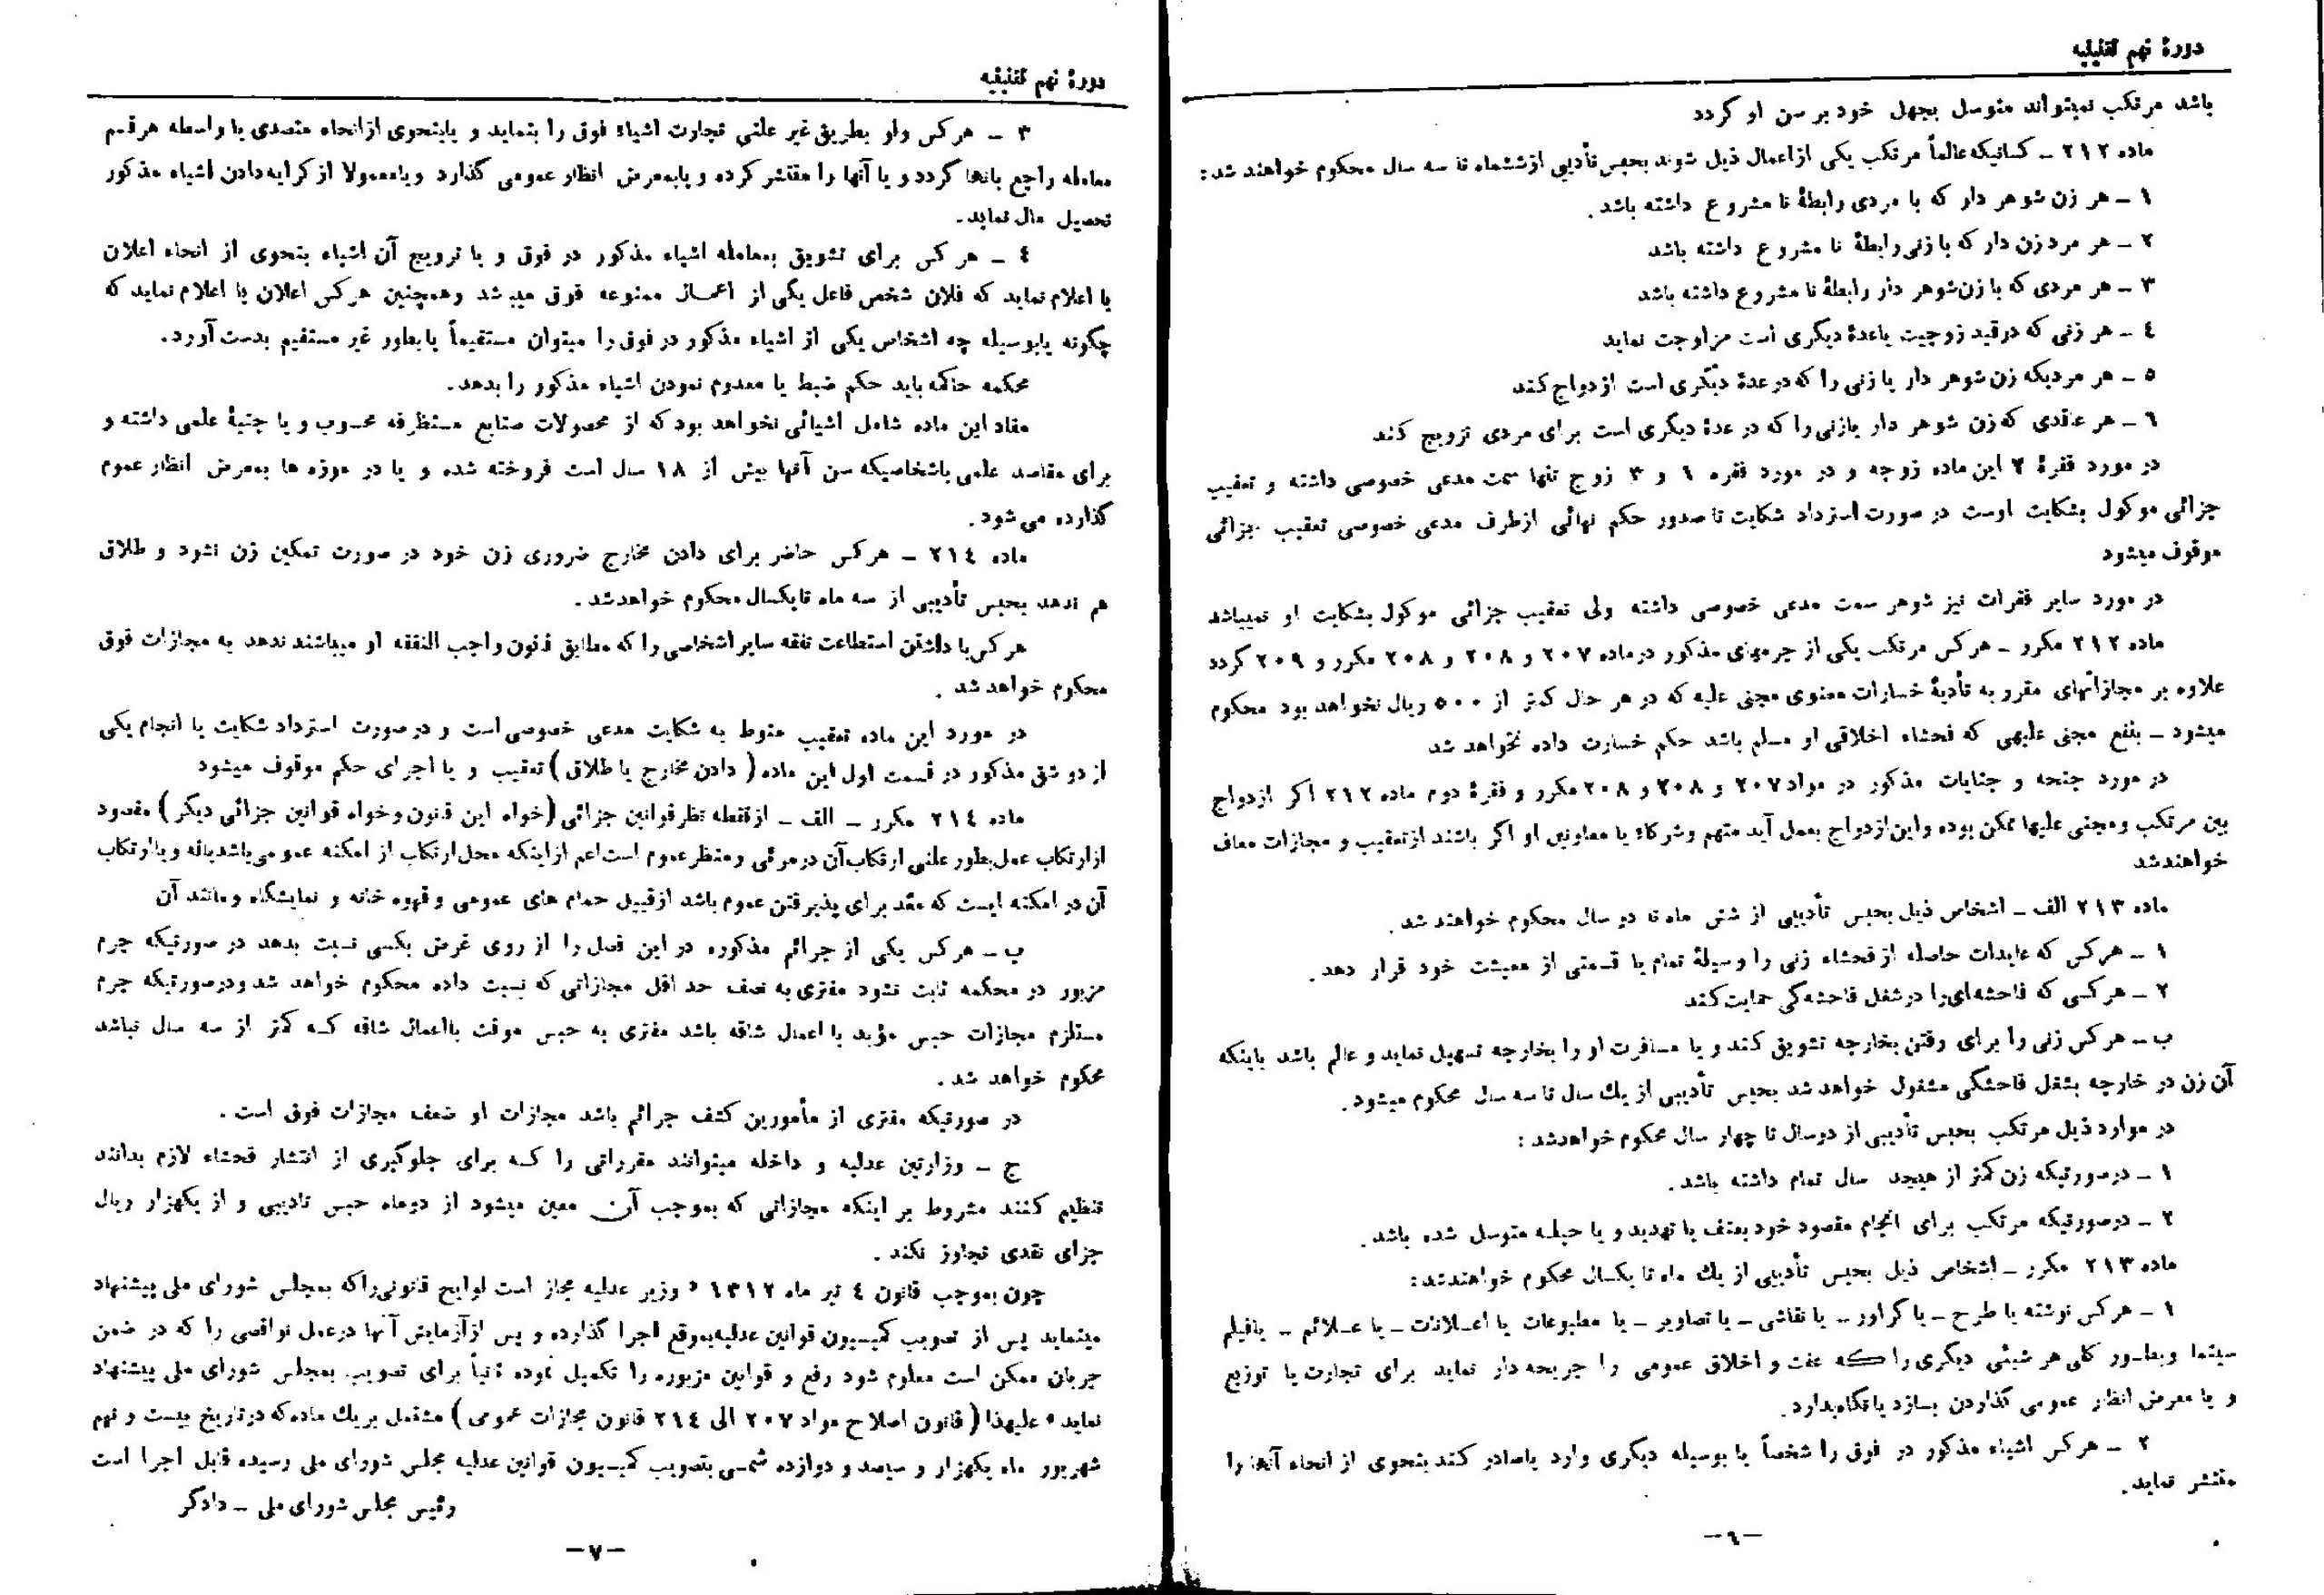 دورۀ نهم تقنینیه
باشد مرتکب نمیتواند متوسل بجهل خود بر سن او گردد
ماده ۲۱۲ ـ کسانیکه عالماً مرتکب یکی از اعمال ذیل شوند بحبس تأدیبی از ششماه تا سه سال محکوم خواهند شد:
۱ ـ هر زن شوهر دار که با مردی رابطۀ نا مشروع داشته باشد.
۲ ـ هر مرد زن دار که با زنی رابطۀ نا مشروع داشته باشد
۳ ـ هر مردی که با زن شوهر دار رابطۀ نا مشروع داشته باشد
٤ ـ هر زنی که در قید زوجیت یا عدۀ دیگری است مزاوجت نماید
٥ ـ هر مردیکه زن شوهر دار یا زنی را که در عدۀ دیگری است ازدواج کند
٦ ـ هر عاقدی که زن شوهر دار یا زنی را که در عدۀ دیگری است برای مردی تزویج کند
در مورد فقرۀ ۲ این ماده زوجه و در مورد فقره ۱ و ۳ زوج تنها سمت مدعی خصوصی داشته و تعقیب
جزائی موکول بشکایت اوست در صورت استرداد شکایت تا صدور حکم نهائی از طرف مدعی خصوصی تعقیب جزائی
موقوف میشود
در مورد سایر فقرات نیز شوهر سمت مدعی خصوصی داشته ولی تعقیب جزائی موکول بشکایت او نمیباشد
ماده ۲۱۲ مکرر ـ هر کس مرتکب یکی از جرمهای مذکور در ماده ۲۰۷ و ۲۰۸ و ۲۰۸ مکرر و ۲۰۹ گردد
علاوه بر مجازاتهای مقرر به تأدیۀ خسارات معنوی مجنی علیه که در هر حال کمتر از ٥۰۰ ریال نخواهد بود محکوم
میشود ـ بنفع مجنی علیهی که فحشاء اخلاقی او مسلم باشد حکم خسارت داده نخواهد شد
در مورد جنحه و جنایات مذکور در مواد ۲۰۷ و ۲۰۸ و ۲۰۸ مکرر و فقرۀ دوم ماده ۲۱۲ اگر ازدواج
بین مرتکب و مجنی علیها ممکن بوده و این ازدواج بعمل آید متهم و شرکاء یا معاونین او اگر باشند از تعقیب و مجازات معاف
خواهند شد
ماده ۲۱۳ الف ـ اشخاص ذیل بحبس تأدیبی از شش ماه تا دو سال محکوم خواهند شد.
۱ ـ هر کس که عایدات حاصله از فحشاء زنی را وسیلۀ تمام یا قسمتی از معیشت خود قرار دهد.
۲ ـ هر کسی که فاحشه‌ای را در شغل فاحشه‌گی حمایت کند
ب ـ هر کس زنی را برای رفتن بخارجه تشویق کند و یا مسافرت او را بخارجه تسهیل نماید و عالم باشد باینکه
آن زن در خارجه بشغل فاحشگی مشغول خواهد شد بحبس تأدیبی از یك سال تا سه سال محکوم میشود.
در موارد ذیل مرتکب بحبس تأدیبی از دو سال تا چهار سال محکوم خواهد شد:
۱ ـ در صورتیکه زن کمتر از هیجده سال تمام داشته باشد.
۲ ـ در صورتیکه مرتکب برای انجام مقصود خود بعنف یا تهدید و یا حیله متوسل شده باشد.
ماده ۲۱۳ مکرر ـ اشخاص ذیل بحبس تأدیبی از یك ماه تا یکسال محکوم خواهند شد:
۱ ـ هر کس نوشته یا طرح ـ یا گراور ـ یا نقاشی ـ یا تصاویر ـ یا مطبوعات یا اعلانات ـ یا علائم ـ یا فیلم
سینما و بطور کلی هر شیئی دیگری را که عفت و اخلاق عمومی را جریحه دار نماید برای تجارت یا توزیع
و یا معرض انظار عمومی گذاردن بسازد یا نگاه بدارد.
۲ ـ هر کس اشیاء مذکور در فوق را شخصاً یا بوسیله دیگری وارد یا صادر کند بنحوی از انحاء آنها را
منتشر نماید.
ـ٦ـ
دورۀ نهم تقنینیه
۳ ـ هر کس ولو بطریق غیر علنی تجارت اشیاء فوق را بنماید و یا بنحوی از انحاء متصدی یا واسطه هر قسم
معامله راجع بآنها گردد و یا آنها را منتشر کرده و یا بمعرض انظار عمومی گذارد و یا معمولا از کرایه دادن اشیاء مذکور
تحصیل مال نماید.
٤ ـ هر کس برای تشویق بمعامله اشیاء مذکور در فوق و یا ترویج آن اشیاء بنحوی از انحاء اعلان
یا اعلام نماید که فلان شخص فاعل یکی از اعمال ممنوعه فوق میباشد و همچنین هر کس اعلان یا اعلام نماید که
چگونه یا بوسیله چه اشخاص یکی از اشیاء مذکور در فوق را میتوان مستقیماً یا بطور غیر مستقیم بدست آورد.
محکمه حاکمه باید حکم ضبط یا معدوم نمودن اشیاء مذکور را بدهد.
مفاد این ماده شامل اشیائی نخواهد بود که از محصولات صنایع مستظرفه محسوب و یا جنبۀ علمی داشته و
برای مقاصد علمی باشخاصیکه سن آنها بیش از ۱۸ سال است فروخته شده و یا در موزه ها بمعرض انظار عموم
گذارده می شود.
ماده ۲۱٤ ـ هر کس حاضر برای دادن مخارج ضروری زن خود در صورت تمکین زن نشود و طلاق
هم ندهد بحبس تأدیبی از سه ماه تا یکسال محکوم خواهد شد.
هر کس با داشتن استطاعت نفقه سایر اشخاصی را که مطابق قانون واجب النفقه او میباشند ندهد به مجازات فوق
محکوم خواهد شد.
در مورد این ماده تعقیب منوط به شکایت مدعی خصوصی است و در صورت استرداد شکایت یا انجام یکی
از دو شق مذکور در قسمت اول این ماده (دادن مخارج یا طلاق) تعقیب و یا اجرای حکم موقوف میشود
ماده ۲۱٤ مکرر ـ الف ـ از نقطه نظر قوانین جزائی (خواه این قانون و خواه قوانین جزائی دیگر) مقصود
از ارتکاب عمل بطور علنی ارتکاب آن در مرئی و منظر عموم است اعم از اینکه محل ارتکاب از امکنه عمومی باشد یا نه و یا ارتکاب
آن در امکنه ایست که معد برای پذیرفتن عموم باشد از قبیل حمام های عمومی و قهوه خانه و نمایشگاه و مانند آن
ب ـ هر کس یکی از جرائم مذکوره در این فصل را از روی غرض بکسی نسبت بدهد در صورتیکه جرم
مزبور در محکمه ثابت نشود مفتری به نصف حد اقل مجازاتی که نسبت داده محکوم خواهد شد و در صورتیکه جرم
مستلزم مجازات حبس مؤبد با اعمال شاقه باشد مفتری به حبس موقت با اعمال شاقه که کمتر از سه سال نباشد
محکوم خواهد شد.
در صورتیکه مفتری از مأمورین کشف جرائم باشد مجازات او ضعف مجازات فوق است.
ج ـ وزارتین عدلیه و داخله میتوانند مقرراتی را که برای جلوگیری از انتشار فحشاء لازم بدانند
تنظیم کنند مشروط بر اینکه مجازاتی که بموجب آن معین میشود از دو ماه حبس تادیبی و از یکهزار ریال
جزای نقدی تجاوز نکند.
چون بموجب قانون ٤ تیر ماه ۱۳۱۲ « وزیر عدلیه مجاز است لوایح قانونی را که بمجلس شورای ملی پیشنهاد
مینماید پس از تصویب کمیسیون قوانین عدلیه بموقع اجرا گذارده و پس از آزمایش آنها در عمل نواقصی را که در ضمن
جریان ممکن است معلوم شود رفع و قوانین مزبوره را تکمیل نموده ثانیاً برای تصویب بمجلس شورای ملی پیشنهاد
نماید » علیهذا (قانون اصلاح مواد ۲۰۷ الی ۲۱٤ قانون مجازات عمومی) مشتمل بر یك ماده که در تاریخ بیست و نهم
شهریور ماه یکهزار و سیصد و دوازده شمسی بتصویب کمیسیون قوانین عدلیه مجلس شورای ملی رسیده قابل اجرا است
رئیس مجلس شورای ملی ـ دادگر
ـ۷ـ